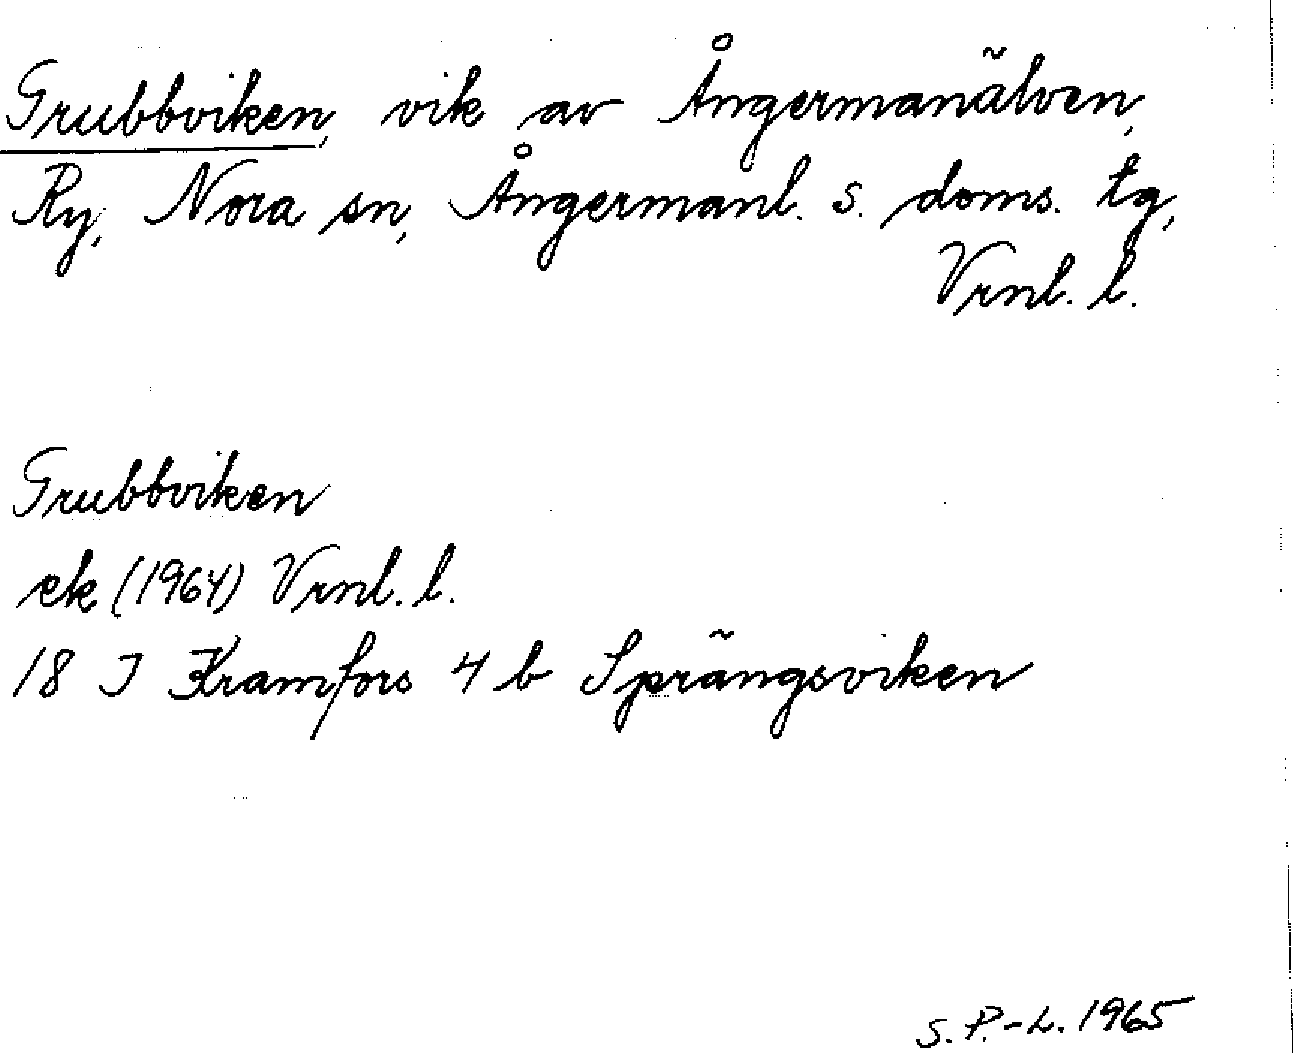 Grubbviken, vik av Ångermanälven,
Ry, Nora sn, Ångermanl. s. doms. tg,
Vrnl. l.
Grubbviken
ek (1964) Vrnl. l.
18 I Kramfors 4 b Sprängsviken
S. P.-L. 1965